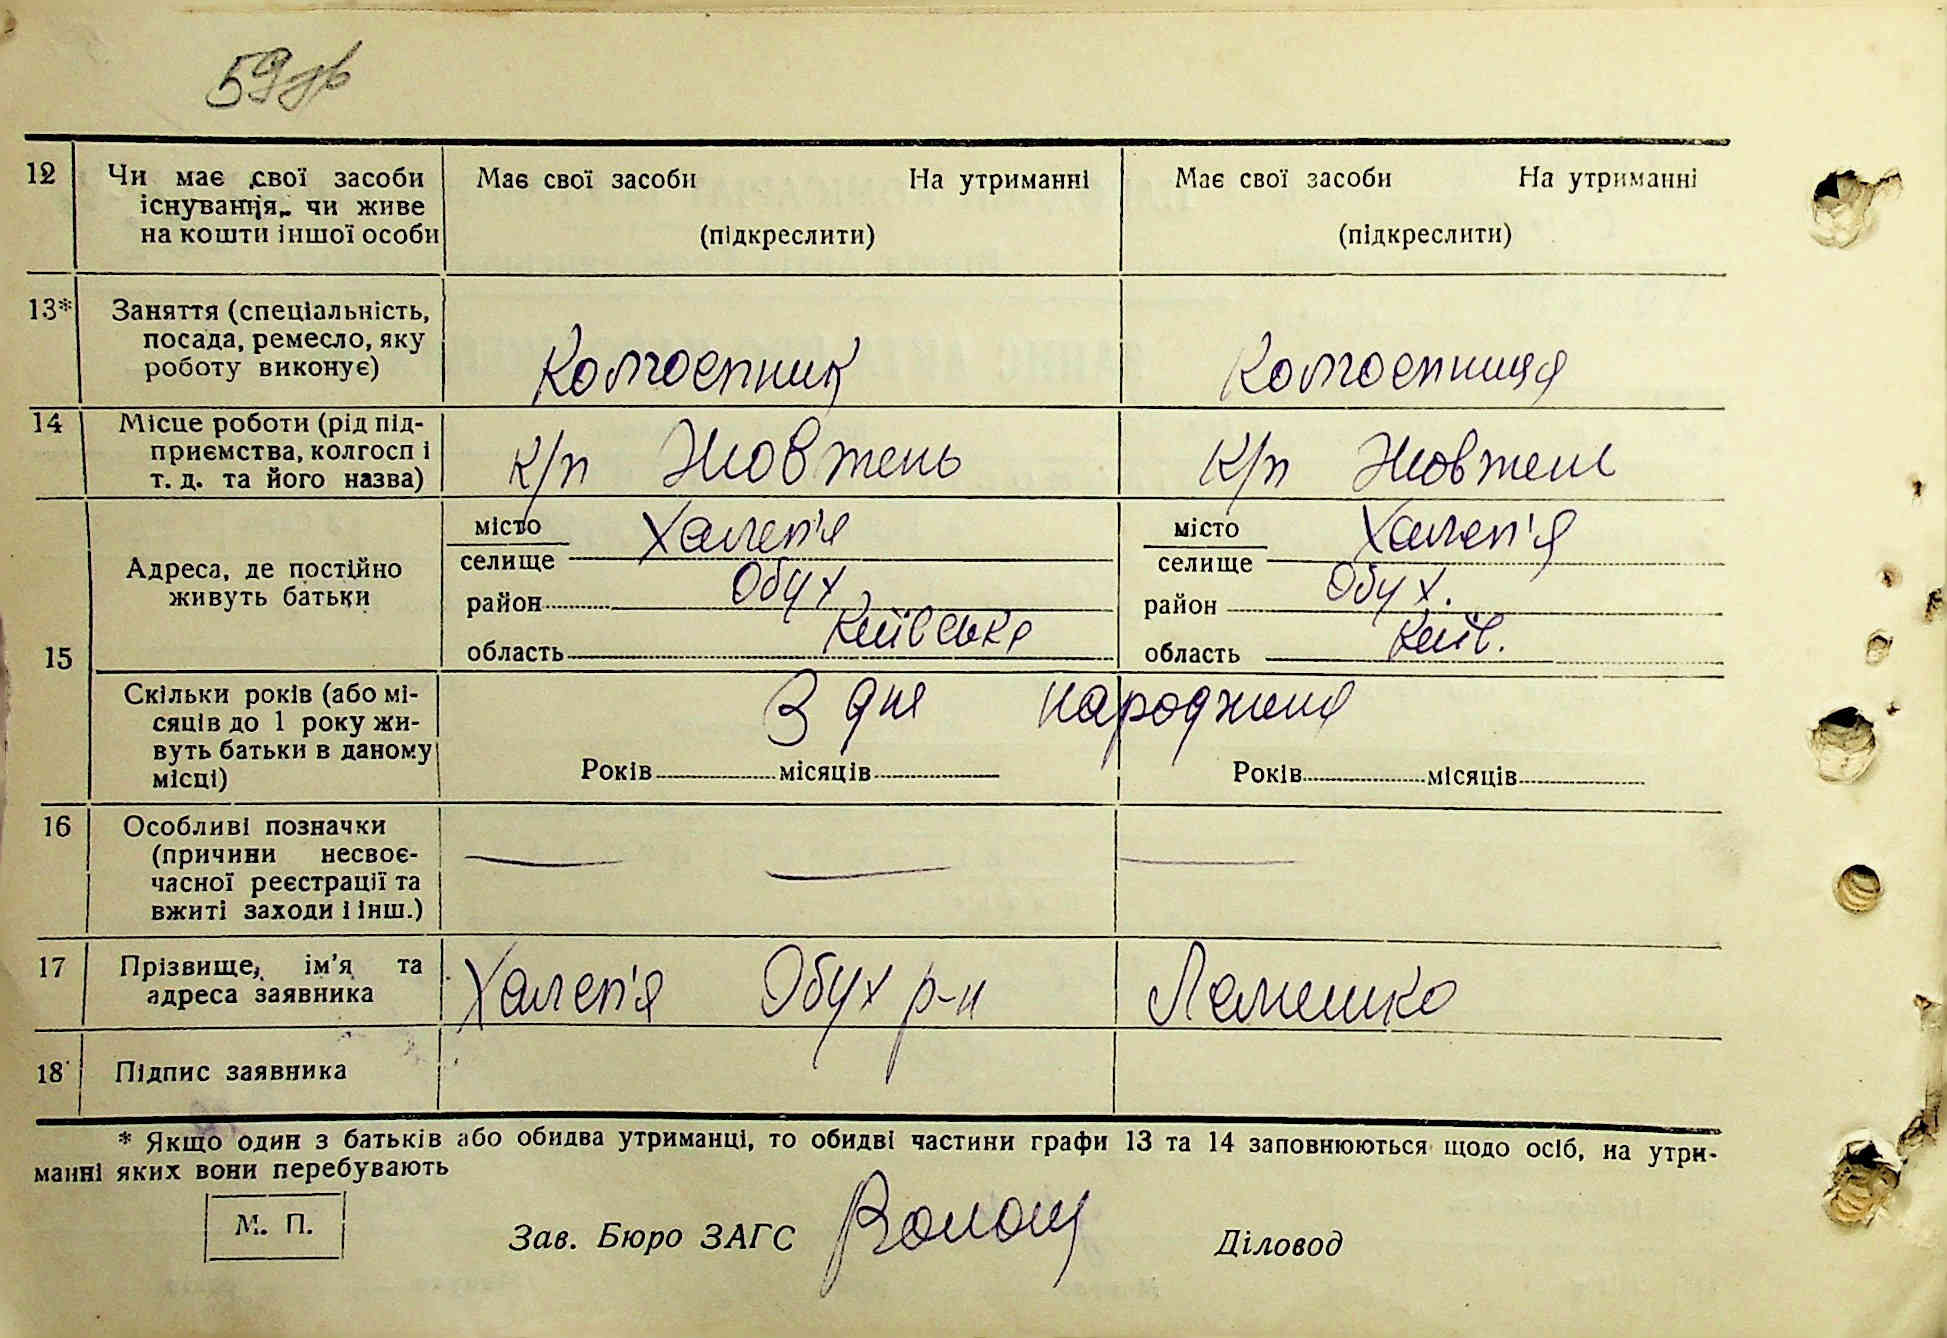 59зв
12 Чи має свої засоби існування, чи живе на кошти іншої особи
Має свої засоби На утриманні
(підкреслити)
Має свої засоби На утриманні
(підкреслити)
13* Заняття (спеціальність, посада, ремесло, яку роботу виконує)
Колгоспник
Колгоспниця
14 Місце роботи (рід підприємства, колгосп і т. д. та його назва)
к/п Жовтень
к/п Жовтень
15 Адреса, де постійно живуть батьки
місто
селище Халеп'я
район Обух.
область Київська
місто
селище Халеп'я
район Обух.
область Київ.
Скільки років (або місяців до 1 року живуть батьки в даному місці)
З дня народження
Років місяців
Років місяців
16 Особливі позначки (причини несвоєчасної реєстрації та вжиті заходи і інш.)
17 Прізвище, ім'я та адреса заявника
Халеп'я Обух р-н Лемешко
18 Підпис заявника
* Якщо один з батьків або обидва утриманці, то обидві частини графи 13 та 14 заповнюються щодо осіб, на утри-
манні яких вони перебувають
М. П.
Зав. Бюро ЗАГС Волощ Діловод